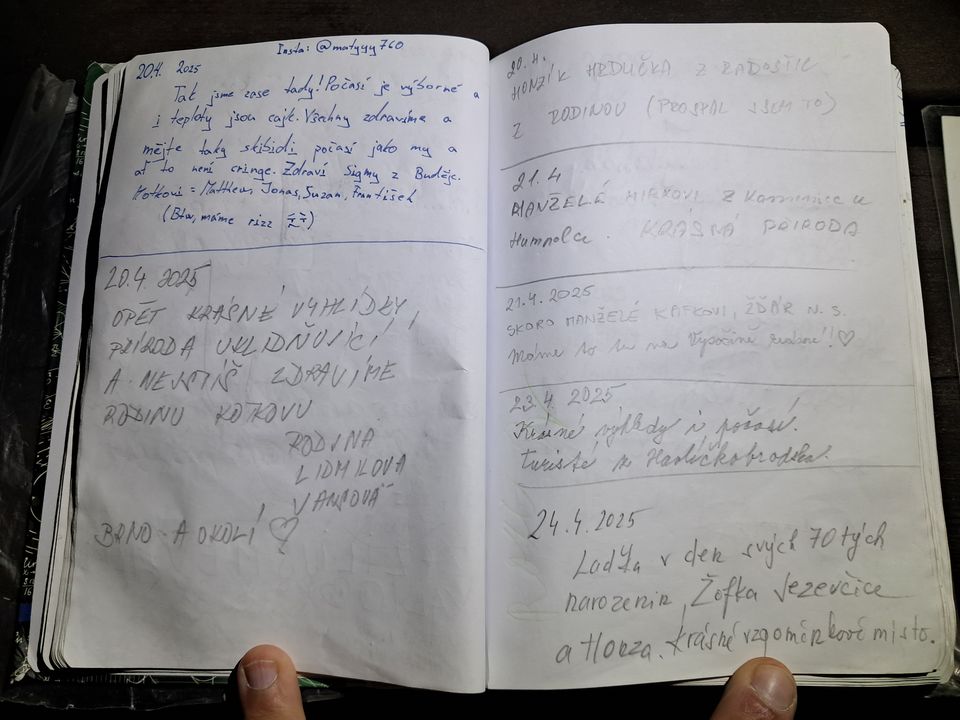 Insta: @matyyy760
20.4. 2025
Tak jsme zase tady! Počasí je výborné a
i teploty jsou cajk. Všechny zdravíme a
mějte taky skibidi počasí jako my a
ať to není cringe. Zdraví Sigmy z Budějc.
Kotkovi = Matthew, Jonas, Suzan, František
(Btw, máme rizz)
20.4. 2025
OPĚT KRÁSNÉ VÝHLÍDKY,
PŘÍRODA UKLIDŇUJÍCÍ,
A NEJSTÍŠ ZDRAVÍME
RODINU KOTKOVU
RODINA
LIDMILOVA
VANSOVÁ
BRNO A OKOLÍ ♡
20.4.
HONZÍK HRDLIČKA Z RADOSTIC
Z RODINOU (PROSPAL JSEM TO)
21.4
MANŽELÉ Z Kamenice u
Humpolce. KRÁSNÁ PŘÍRODA
21.4.2025
SKORO MANŽELÉ KAFKOVI, ŽĎÁR N. S.
Máme to tu na Vysočině krásné!! ♡
23.4. 2025
Krásné výhledy i počasí.
Turisté z Havlíčkobrodska.
24.4.2025
Laďka v den svých 70tých
narozenin, Žofka Jezevčice
a Honza. Krásné vzpomínkové místo.